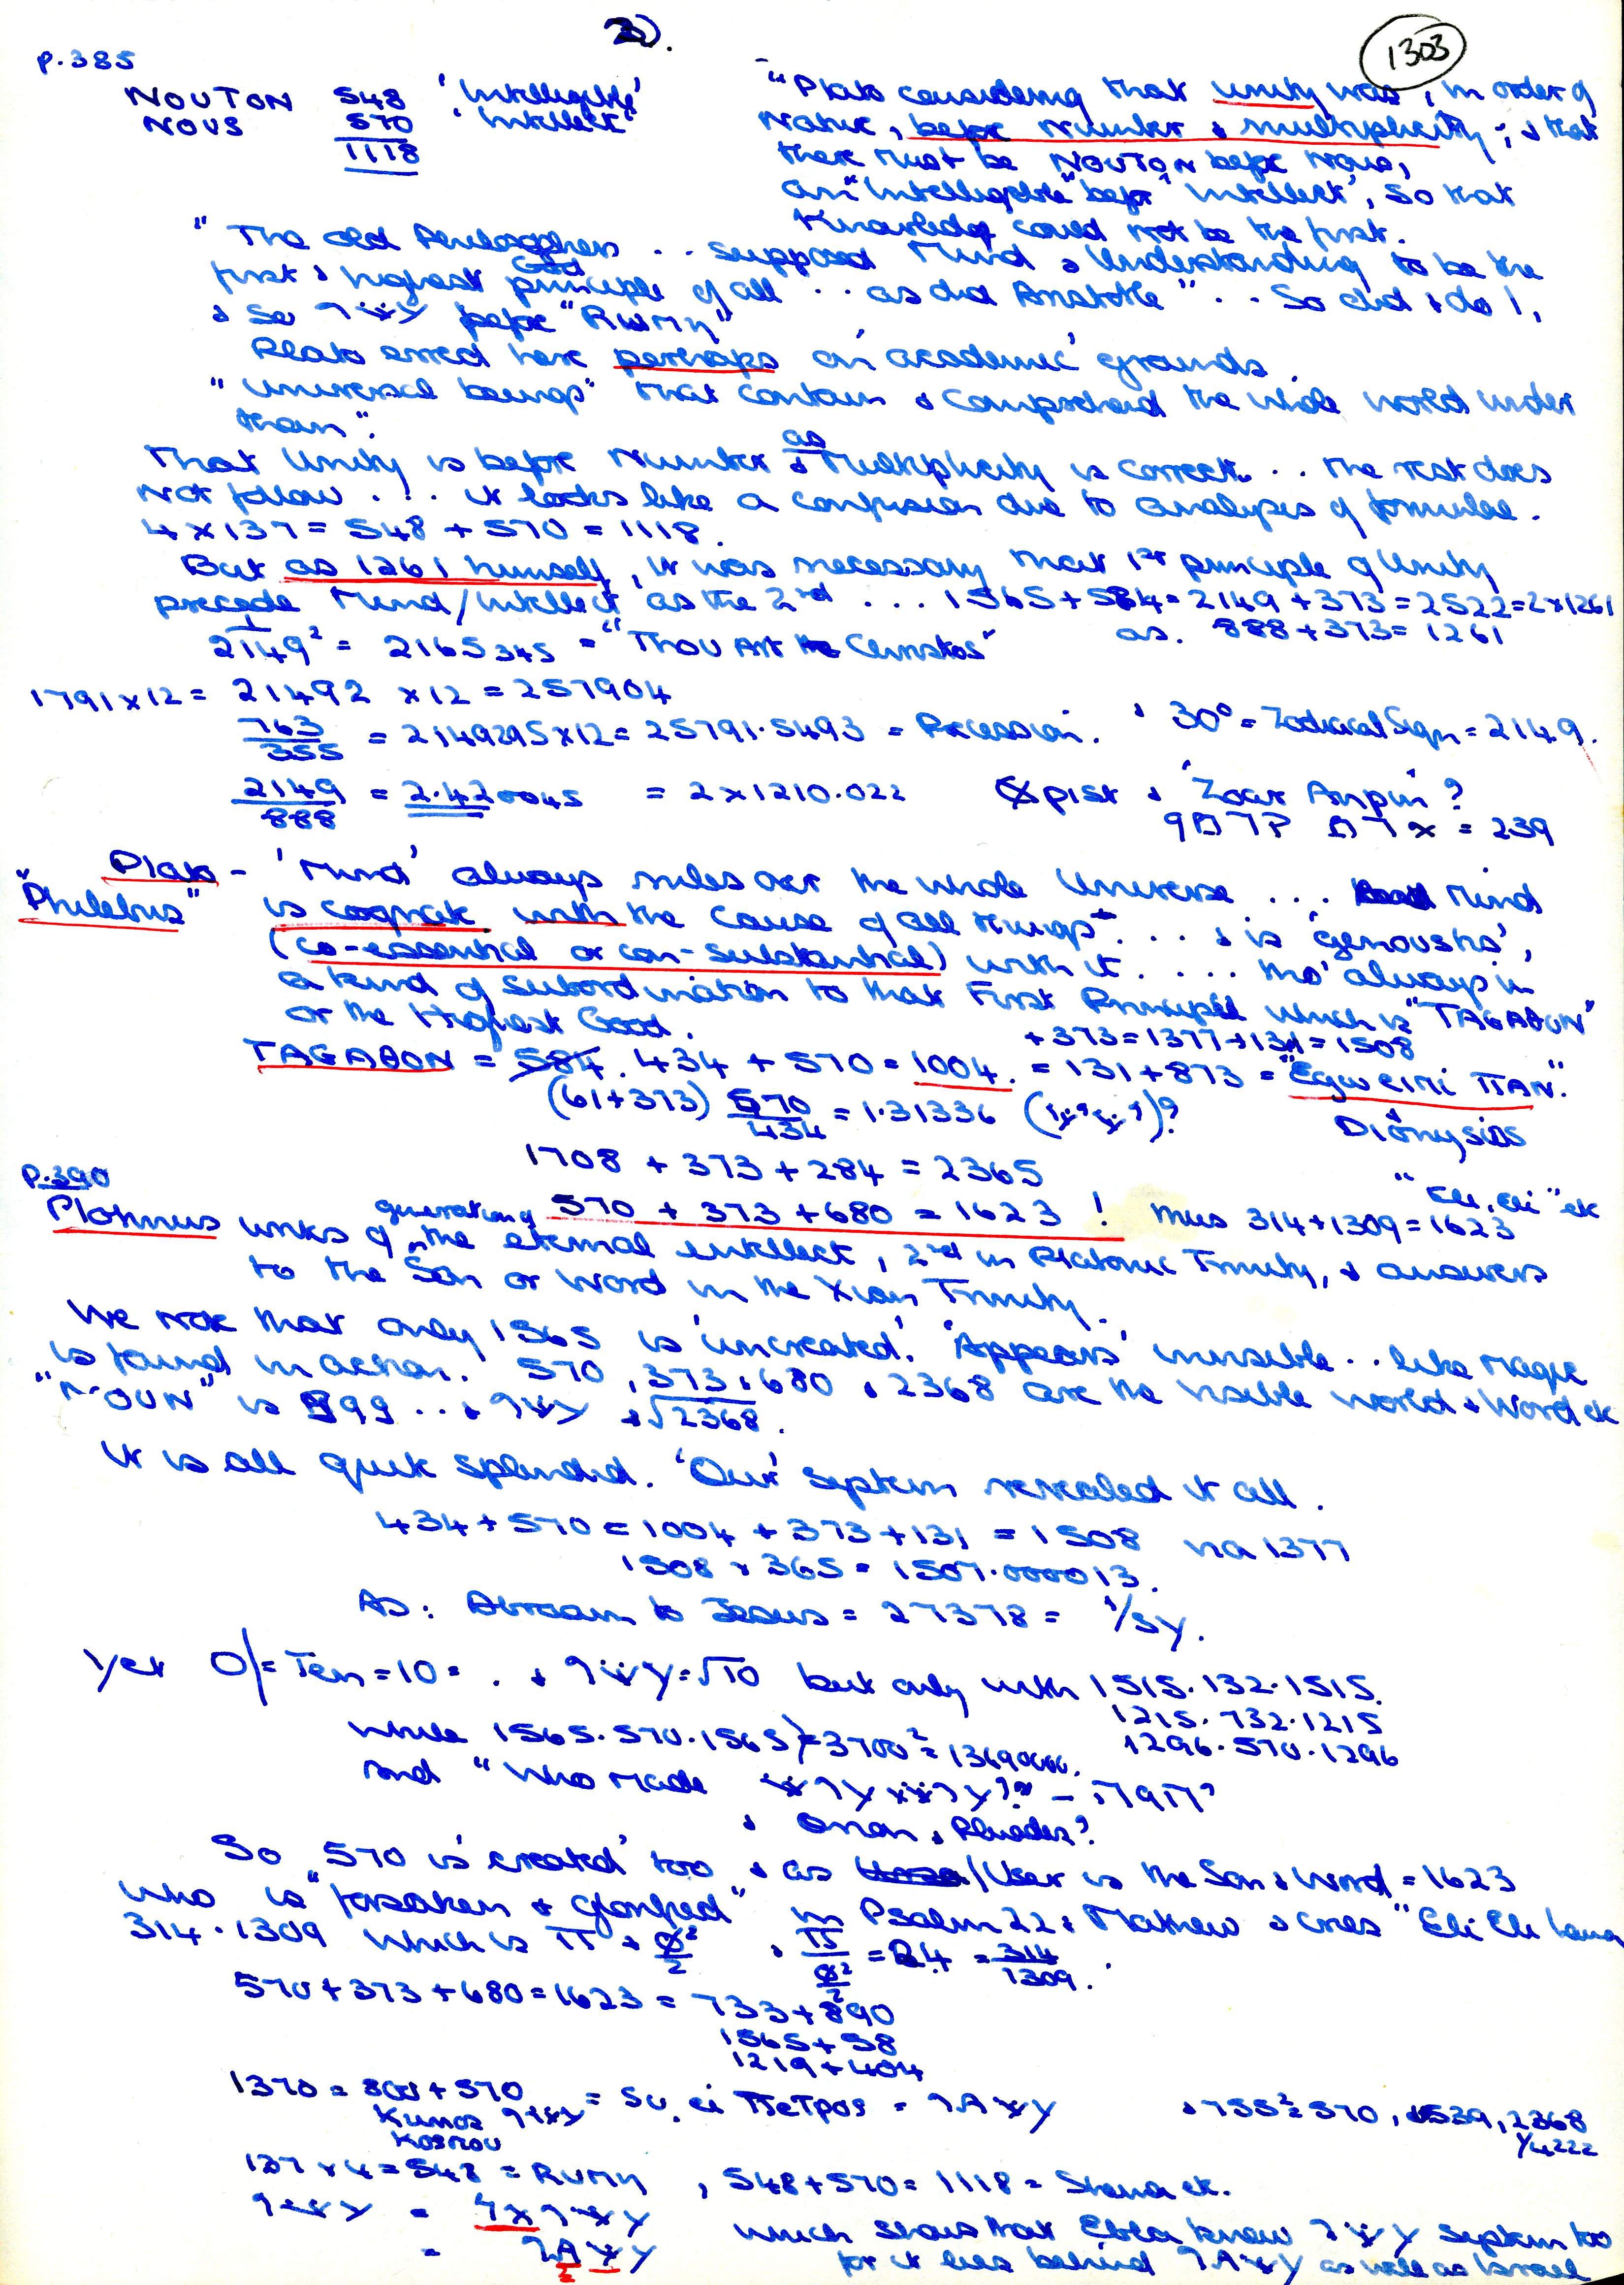 2).
1303
p.385
NOUTON 548 'Intelligible'
NOUS 570 'Intellect'
1118
"Plato considering that Unity was, in order of
Nature, before Number & multiplicity; & that
there must be NOUTON before Nous,
an "Intelligible" before 'Intellect', so that
Knowledge could not be the first.
"The old Philosophers .. supposed Mind & Understanding to be the
first & highest God principle of all .. as did Aristotle" .. So did & do I,
& so before "Rwmn"
Plato erred here perhaps on 'academic' grounds.
"Universal beings" that contain & comprehend the whole world under
them".
That Unity is before Number as & Multiplicity is correct. .. the rest does
not follow ... it looks like a confusion due to analyses of formulae.
4 x 137 = 548 + 570 = 1118.
But as 1261 himself, it was necessary that 1st principle of Unity
precede Mind/Intellect as the 2nd ... 1565 + 584 = 2149 + 373 = 2522 = 2 x 1261
as. 888 + 373 = 1261
2149² = 2165345 = "Thou Art the Christos"
1791 x 12 = 21492 x 12 = 257904
763/355 = 2149295 x 12 = 25791.5493 = Precession. & 30° = Zodiacal Sign = 2149.
2149/888 = 2.420045 = 2 x 1210.022 & 'Zoar Anpin'?
= 239
Plato - 'Mind' always rules over the whole Universe ... Mind
"Philebus" is cognate with the cause of all things" ... & is 'genousths',
(co-essential or con-substantial) with it .... tho' always in
a kind of subordination to that First Principle which is "TAGAθON"
or the Highest Good.
+ 373 = 1377 + 131 = 1508
TAGAθON = 584. 434 + 570 = 1004. = 131 + 873 = "Egw eimi ΠAN".
(61 + 373) 570/434 = 1.31336
Dionysios
1708 + 373 + 284 = 2365
p.390
"Eli, Eli" etc
570 + 373 + 680 = 1623 ! thus 314 + 1309 = 1623
Plotinus writes of generation of the eternal intellect, 2nd in Platonic Trinity, & answers
to the Son or Word in the Xian Trinity.
We note that only 1565 is 'uncreated'. 'Appears' invisible .. like magic
is found in action. 570, 373 & 680 & 2368 are the visible world & Word etc
"NOUN" is 999 .. & √2368.
It is all quite splendid. 'Our' system revealed it all.
434 + 570 = 1004 + 373 + 131 = 1508 via 1377
1508 x 365 = 1507.000013.
As: Abraam to Jesus = 27378 = 1/5y.
Yet O/ = Ten = 10 = . & = √10 but only with 1515.132.1515.
1215.732.1215
while 1565.570.1565 = 3700² = 1369000. & 1296.570.1296
and "Who made
& Orion & Pleiades?
So 570 is 'created' too & as /User is the Son & Word = 1623
who is "forsaken & glorified" in Psalm 22 & Mathew & cries "Eli Eli lama
314.1309 which is π & Ø²/2 & = 314/1309.
570 + 373 + 680 = 1623 = 733 + 890
1565 + 58
1219 + 404
1370 = 800 + 570 = Su ei Πετρος = & 755² = 570, 1539, 2368
Kosmou
1/4222
137 x 4 = 548 = Rwmn, 548 + 570 = 1118 = Shema etc.
= 7x
which shows that Ebla knew system too
for it lies behind as well as Israel